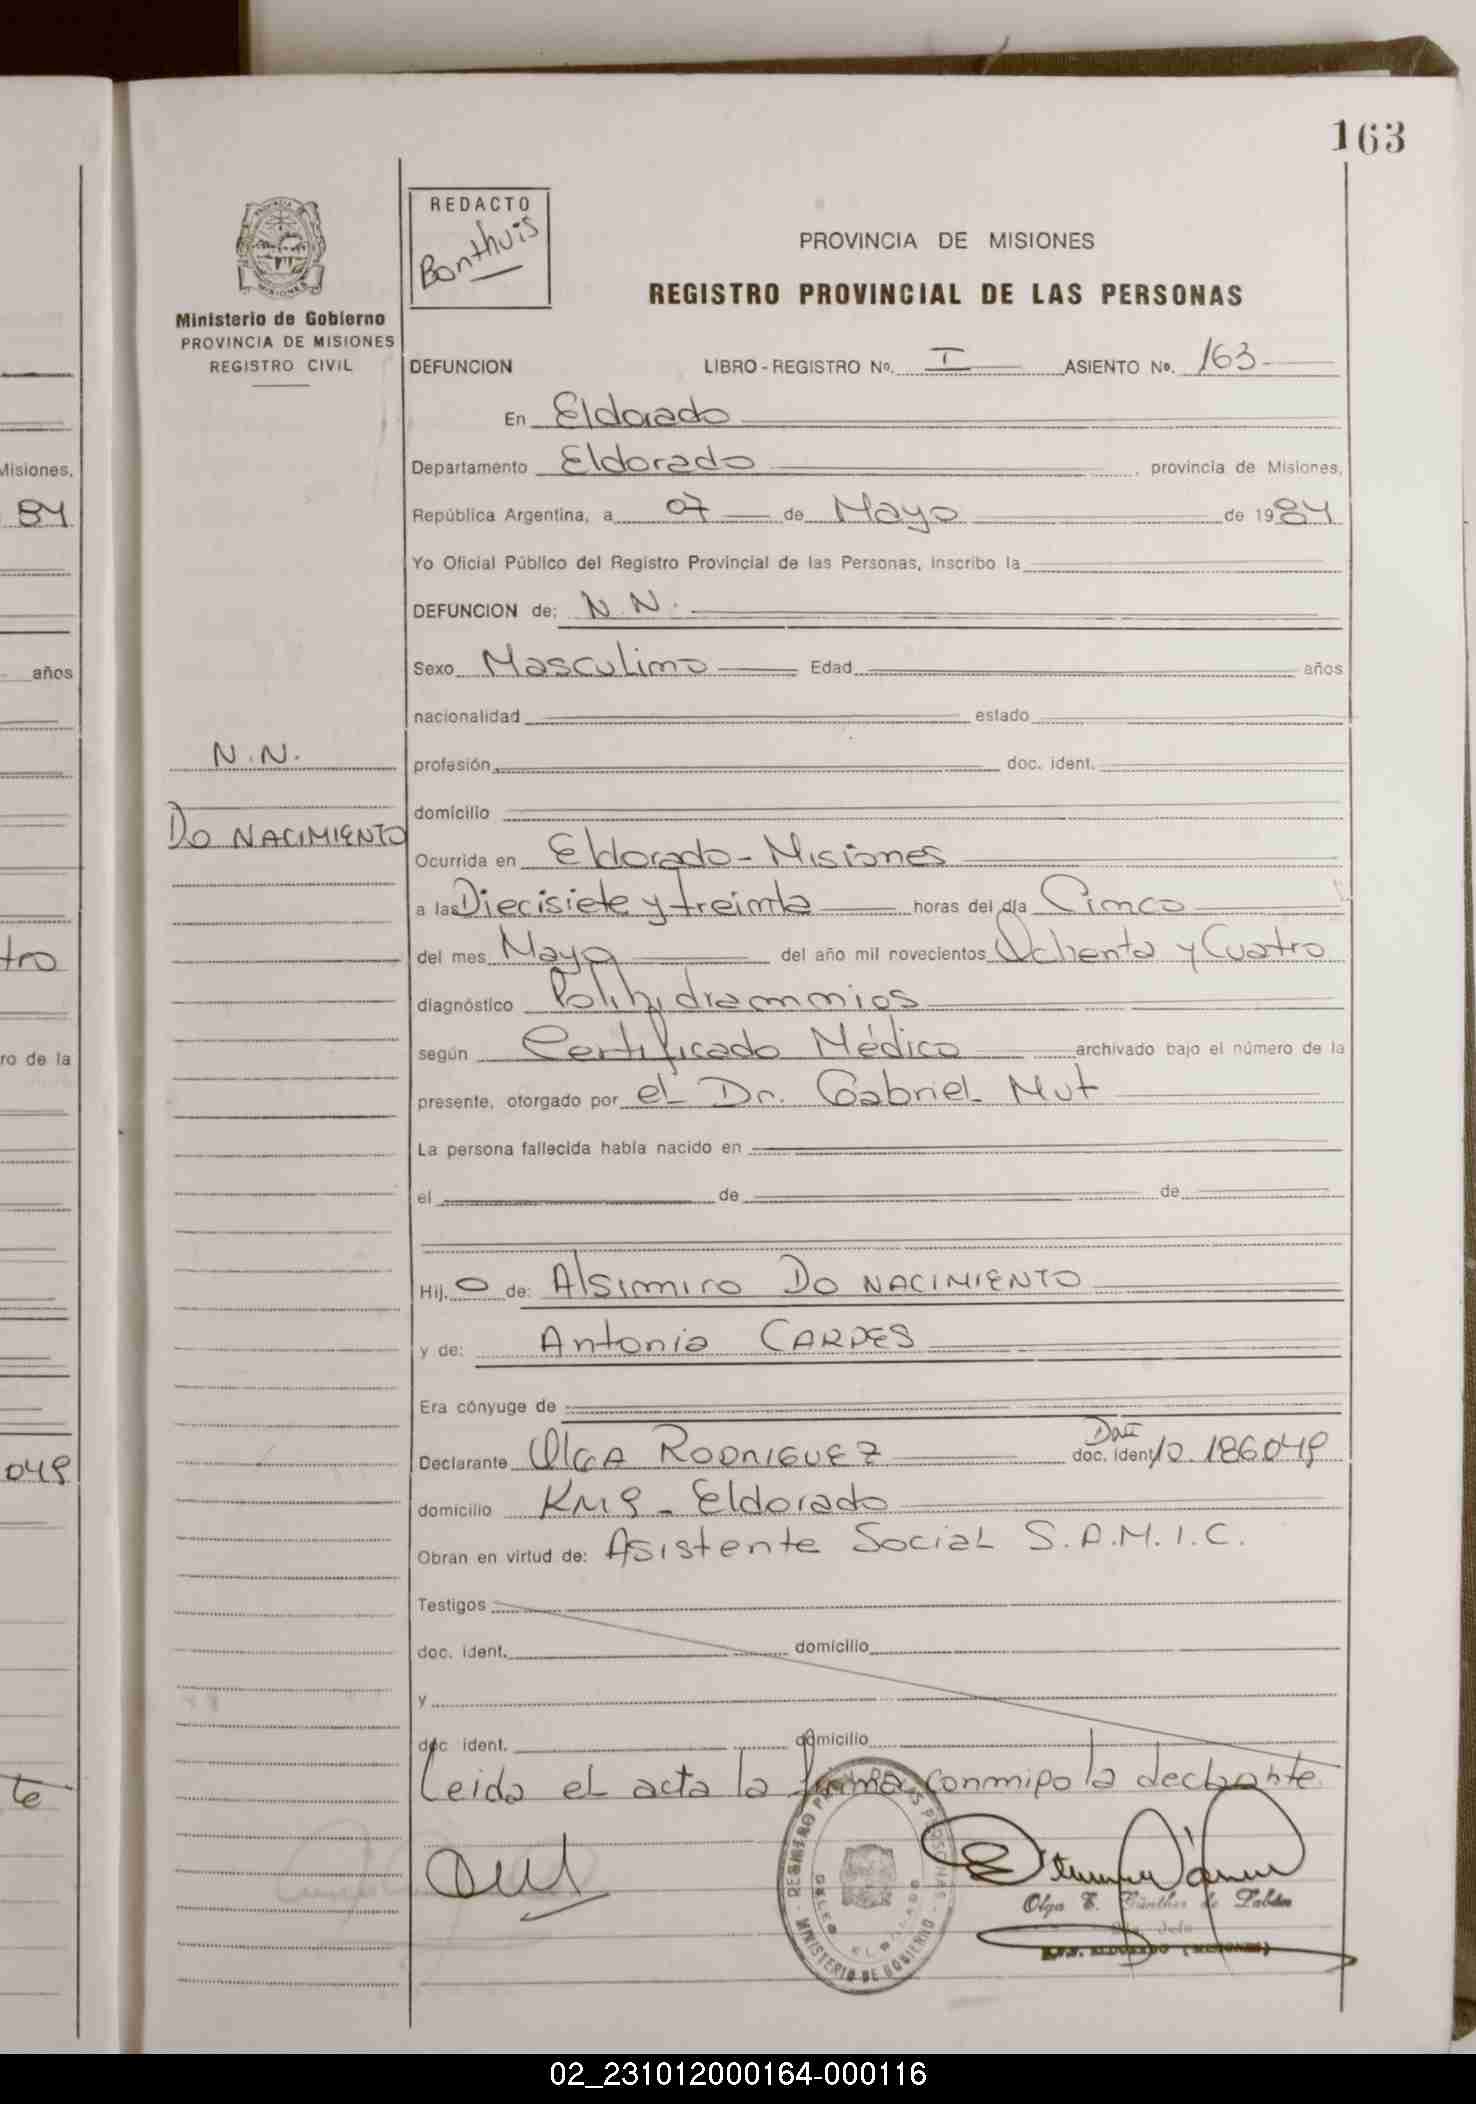 163
REDACTO
Bonthuis
PROVINCIA DE MISIONES
REGISTRO PROVINCIAL DE LAS PERSONAS
Ministerio de Gobierno
PROVINCIA DE MISIONES
REGISTRO CIVIL
DEFUNCION LIBRO - REGISTRO No. I ASIENTO No. 163
En Eldorado
Departamento Eldorado, provincia de Misiones,
República Argentina, a 07 de Mayo de 1984
Yo Oficial Público del Registro Provincial de las Personas, inscribo la
DEFUNCION de: N.N.
Sexo Masculino Edad años
nacionalidad estado
N.N.
profesión doc. ident.
domicilio
DO NACIMIENTO
Ocurrida en Eldorado - Misiones
a las Diecisiete y treinta horas del día Cinco
del mes Mayo del año mil novecientos Ochenta y Cuatro
diagnóstico Polihidramnios
según Certificado Médico archivado bajo el número de la
presente, otorgado por el Dr. Gabriel Mut
La persona fallecida había nacido en
el de de
Hij. o de: Alsimiro DO NACIMIENTO
y de: Antonia CARDES
Era cónyuge de
Declarante OlGA RODRIGUEZ doc. ident. 10.186049
domicilio KM 9 - Eldorado
Obran en virtud de: Asistente Social S.A.M.I.C.
Testigos
doc. ident. domicilio
y
doc. ident. domicilio
Leida el acta la firma conmigo la declarante
REGISTRO PROV. DE LAS PERSONAS
MINISTERIO DE GOBIERNO
Olga E. Günther de
Misiones,
84
años
tro
ro de la
049
te
02_231012000164-000116